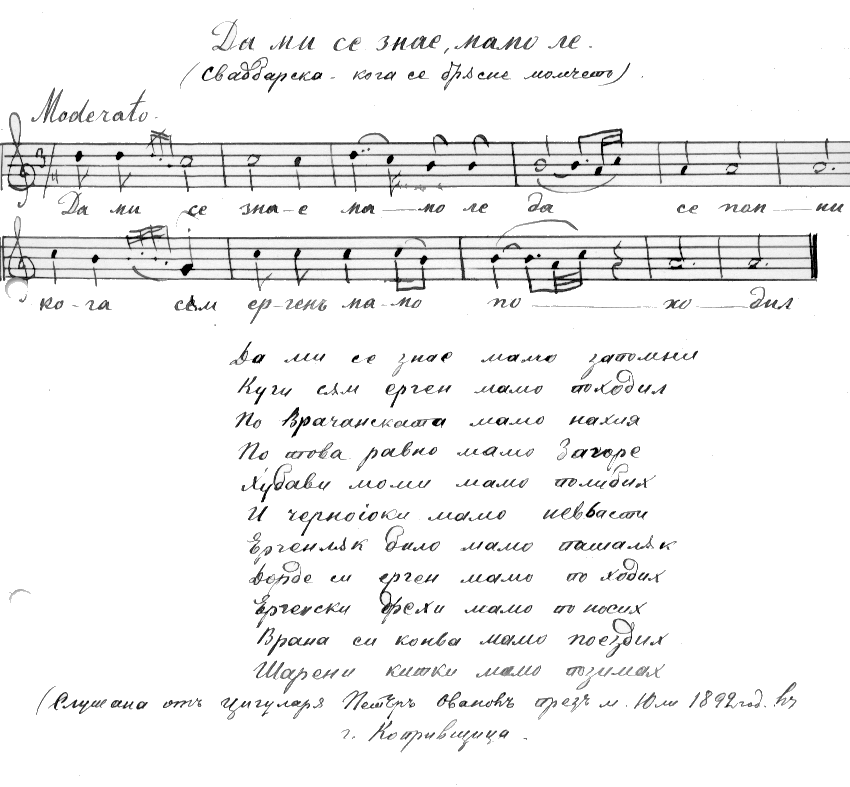 Да ми се знае, мамо ле.
(Сватбарска - кога се брѫсне момчето).
Moderato.
Да ми се зна-е ма-мо ле да се поп-ни
ко-га сѫм ер-генъ ма-мо по-хо-дил
Да ми се знае мамо запомни
Куги сѫм ерген мамо походил
По Врачанската мамо нахия
По това равно мамо Загоре
Хубави моми мамо полибих
И черноіоки мамо невѣсти
Ергенлѫк било мамо пашалѫк
Дорде си ерген мамо по ходих
Ергенски дрехи мамо по носих
Врана си конва мамо поездих
Шарени китки мамо позимах
(Слушана отъ цигуларя Петъръ Овановъ презъ м. Юли 1892 год. въ
г. Копривщица.